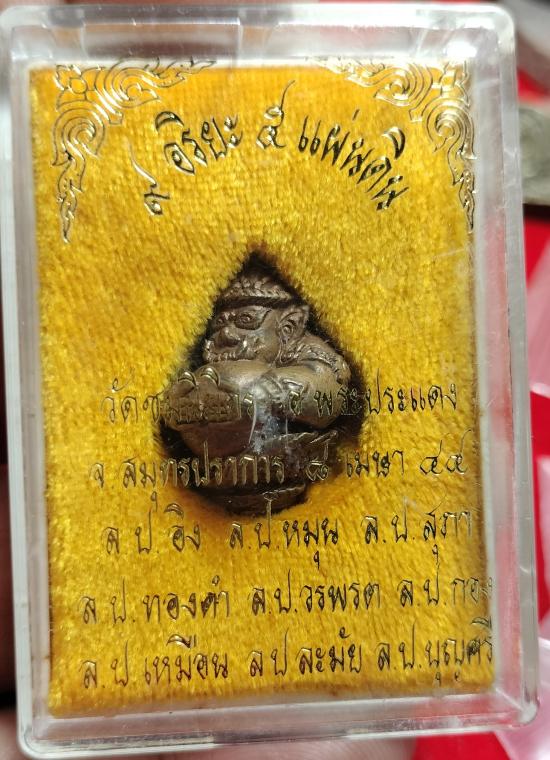 ๙ อริยะ ๕ แผ่นดิน
วัด พระประแดง
จ.สมุทรปราการ ๘ เมษา ๔๕
ล.ป.อิง ล.ป.หมุน ล.ป.สุภา
ล.ป.ทองดำ ล.ป.วรพรต ล.ป.กอง
ล.ป.เหมือน ล.ป.ละมัย ล.ป.บุญศรี